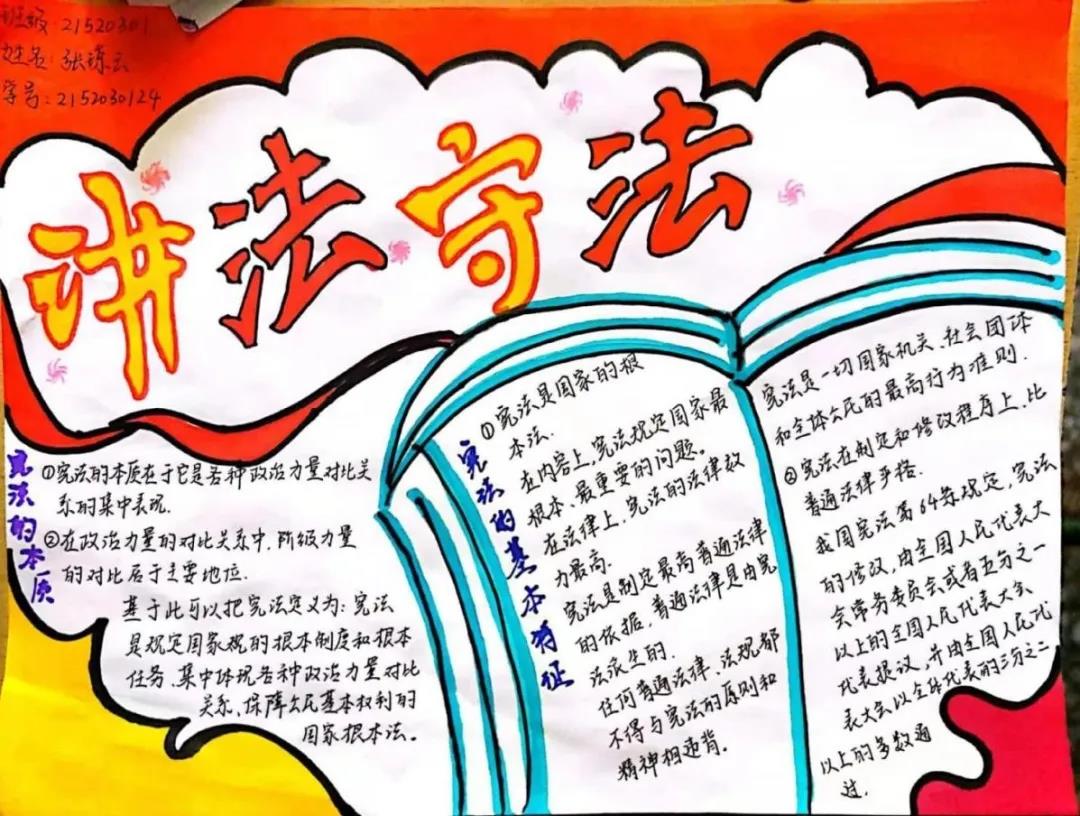 班级:21520301
姓名:张瑧云
学号:2152030124
讲法守法
宪法的本质
①宪法的本质在于它是各种政治力量对比关
系的集中表现.
②在政治力量的对比关系中,阶级力量
的对比居于主要地位.
基于此可以把宪法定义为:宪法
是规定国家规的根本制度和根本
任务、集中体现各种政治力量对比
关系、保障公民基本权利的
国家根本法。
宪法的基本特征
①宪法是国家的根
本法.
在内容上,宪法规定国家最
根本、最重要的问题。
在法律上,宪法的法律效
力最高.
宪法是制定最高普通法律
的依据,普通法律是由宪
法派生的.
任何普通法律、法规都
不得与宪法的原则和
精神相违背。
宪法是一切国家机关、社会团体
和全体公民的最高行为准则.
②宪法在制定和修改程序上,比
普通法律严格.
我国宪法第64条规定,宪法
的修改,由全国人民代表大
会常务委员会或者五分之一
以上的全国人民代表大会
代表提议,并由全国人民代
表大会以全体代表的三分之二
以上的多数通
过.